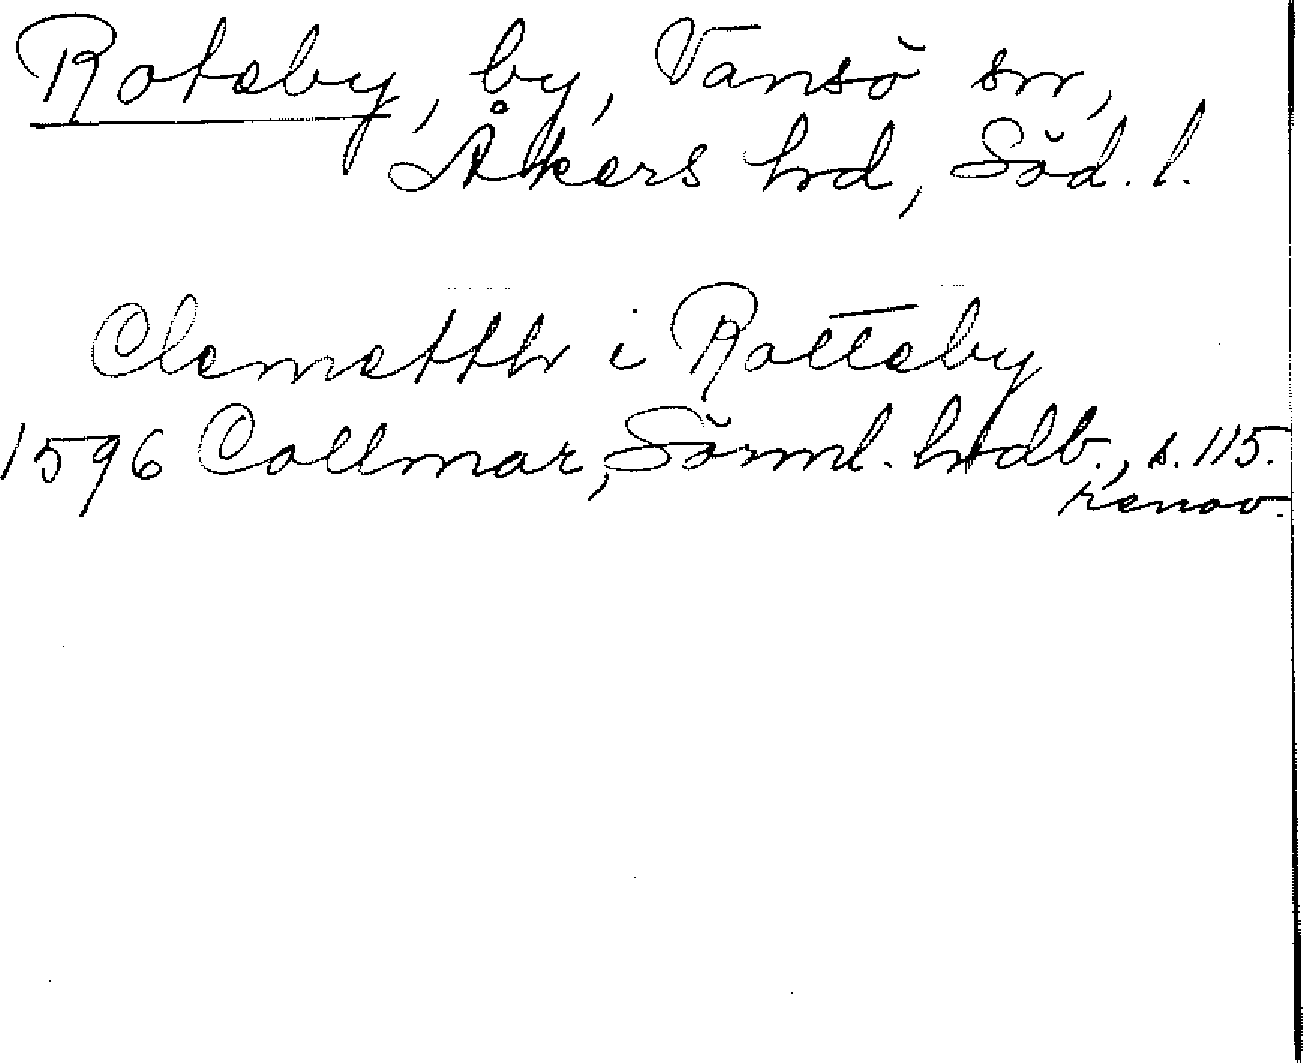 Roteby, by, Vansö sn,
Åkers hd, Söd. l.
Clemetth i Rotteby
1596 Collmar, Sörml. hdb., s. 115.
renov.